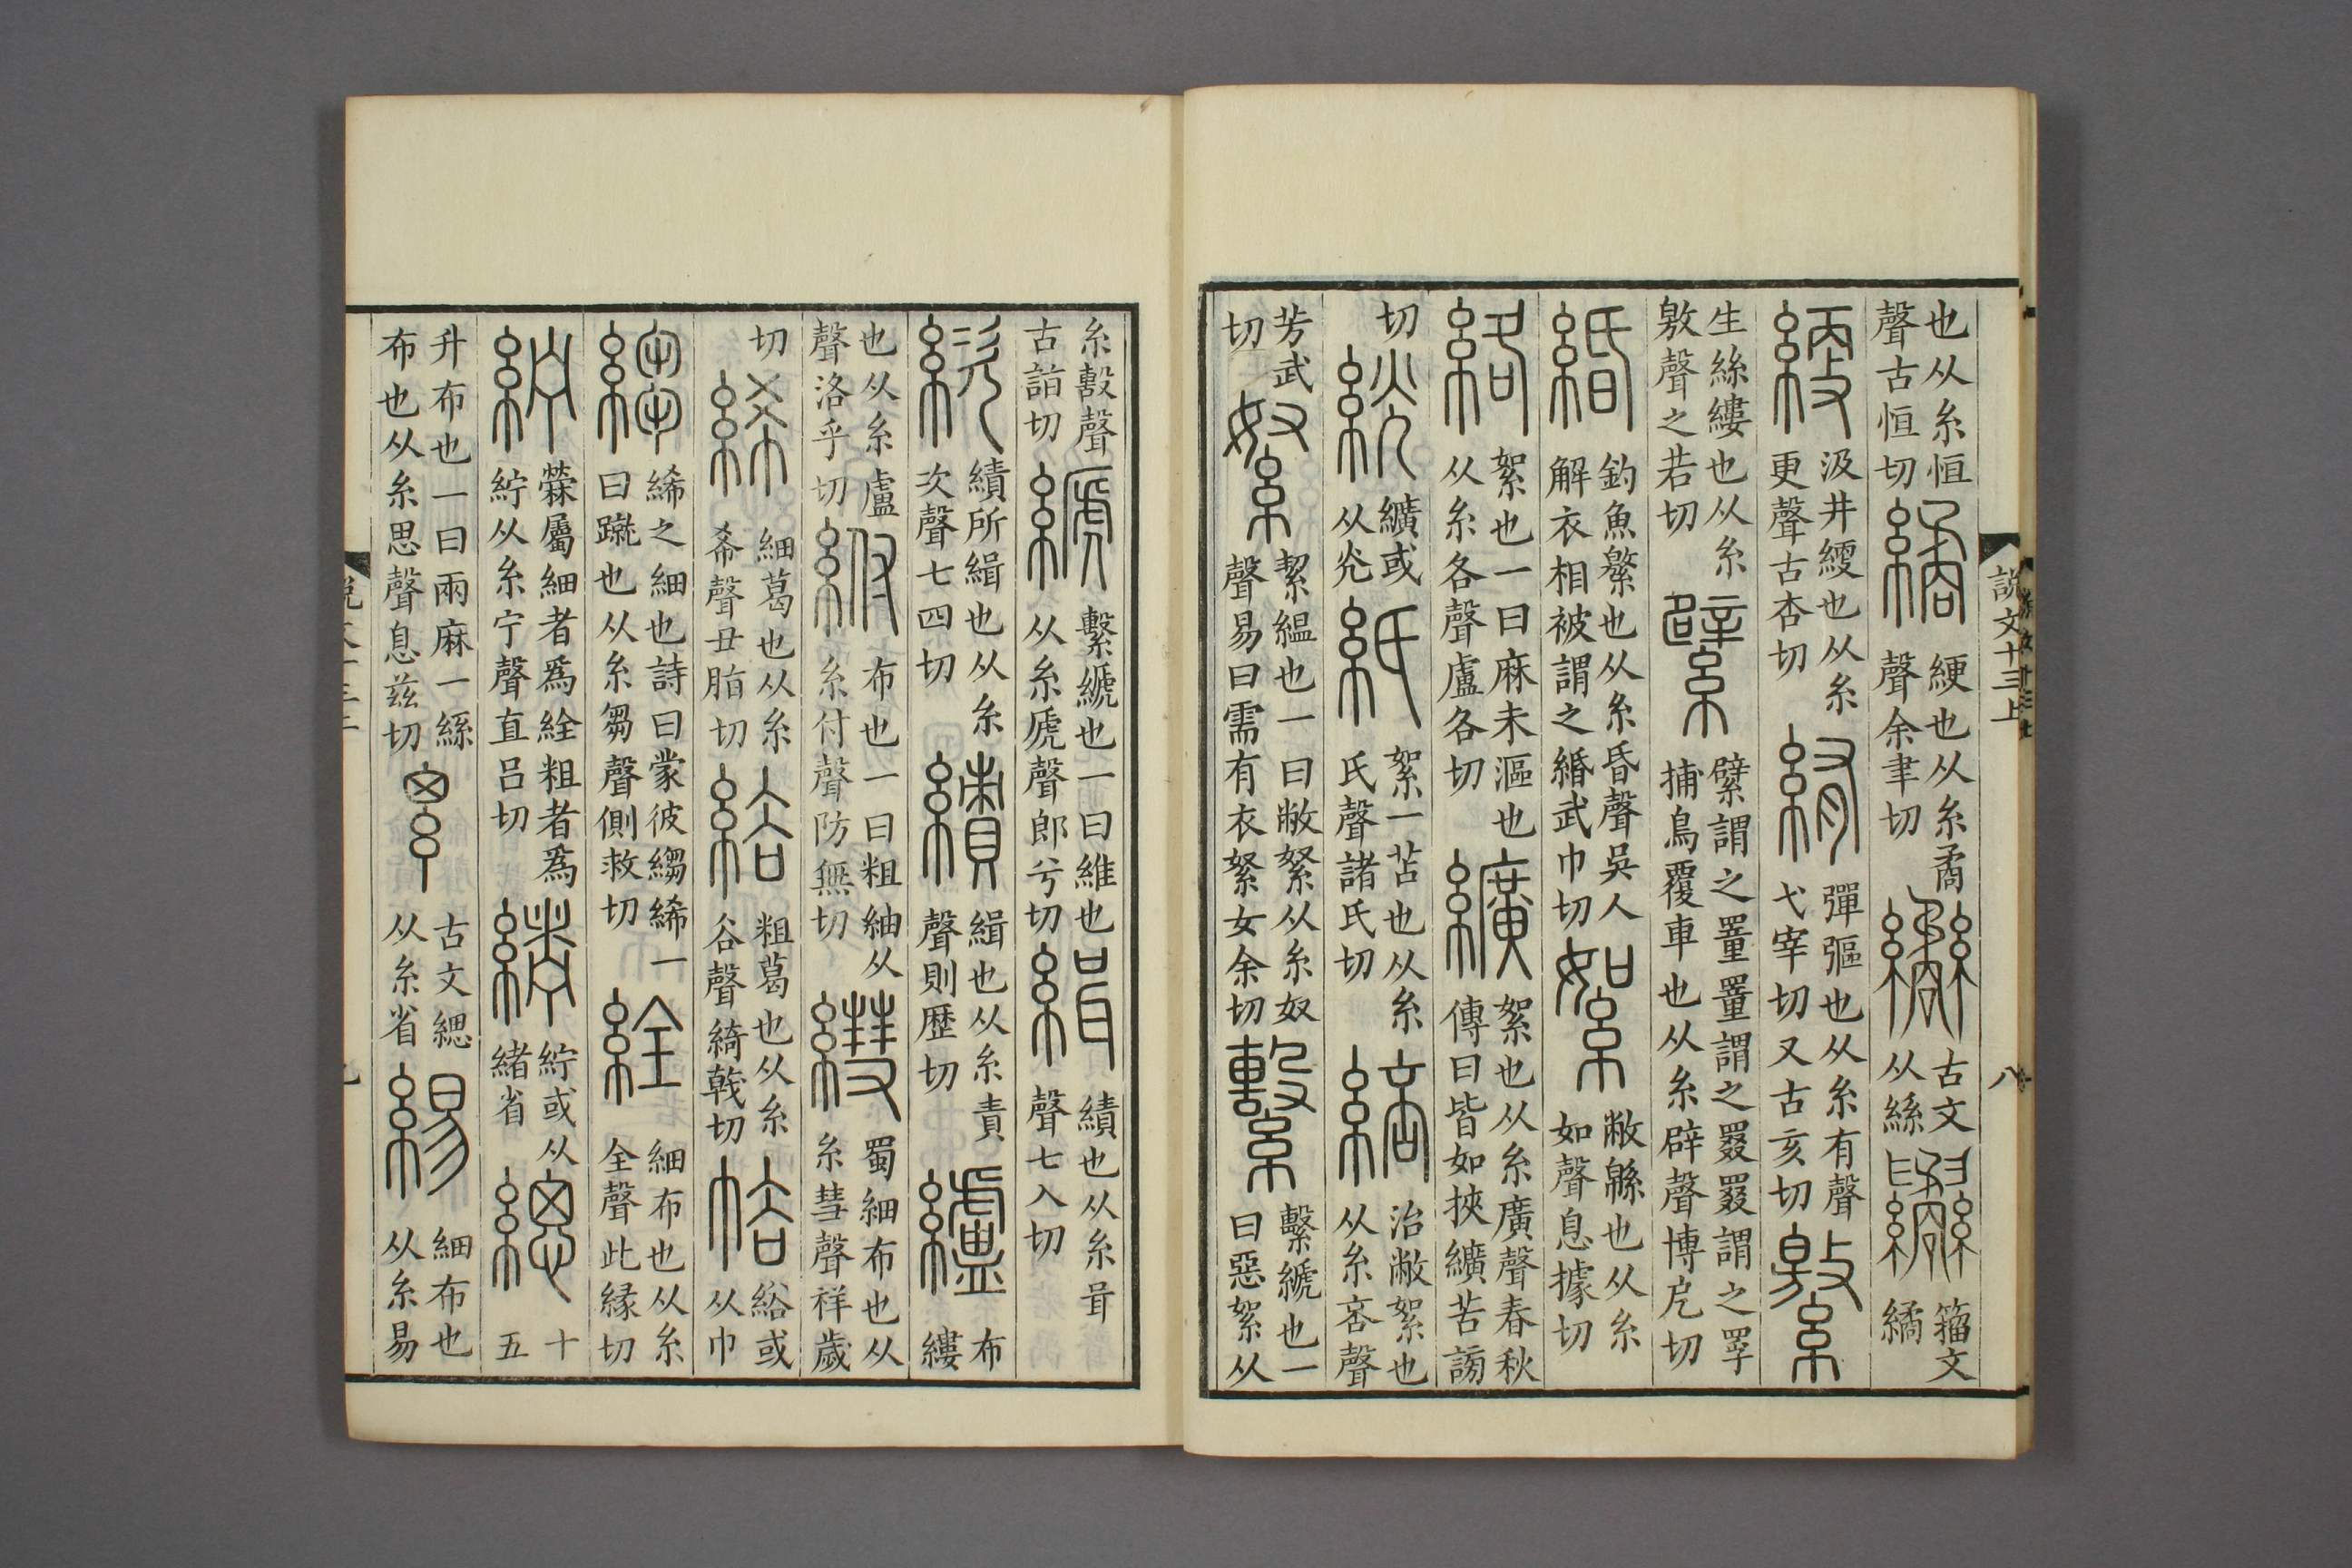 說文十三上 八
也从糸恒聲古恒切 繘 綆也从糸矞聲余聿切 古文从絲 籀文繘
綆 汲井綆也从糸更聲古杏切 䋣 彈彄也从糸有聲弋宰切又古亥切 繳
生絲縷也从糸敫聲之若切 繴 繴謂之罿罿謂之罬罬謂之罦捕鳥覆車也从糸辟聲博戹切
緍 釣魚繁也从糸昏聲吳人解衣相被謂之緍武巾切 絮 敝緜也从糸如聲息據切
絡 絮也一曰麻未漚也从糸各聲盧各切 纊 絮也从糸廣聲春秋傳曰皆如挾纊苦謗
切 絖 纊或从光 紙 絮一苫也从糸氏聲諸氏切 䋨 治敝絮也从糸咅聲
芳武切 䋈 絜縕也一曰敝䋈从糸奴聲易曰需有衣䋈女余切 繫 繫𦃇也一曰惡絮从
糸毄聲古詣切 𦃇 繫𦃇也一曰維也从糸虒聲郎兮切 緝 績也从糸咠聲七入切
絘 績所緝也从糸次聲七四切 績 緝也从糸責聲則歷切 纑 布縷
也从糸盧聲洛乎切 紨 布也一曰粗紬从糸付聲防無切 䌨 蜀細布也从糸彗聲祥歲
切 絺 細葛也从糸希聲丑脂切 綌 粗葛也从糸谷聲綺戟切 㡄 綌或从巾
縐 絺之細也詩曰蒙彼縐絺一曰蹴也从糸芻聲側救切 絟 細布也从糸全聲此緣切
紵 檾屬細者爲絟粗者爲紵从糸宁聲直呂切 紵或从緒省 緦 十五
升布也一曰兩麻一絲布也从糸思聲息兹切 古文緦从糸省 緆 細布也从糸易